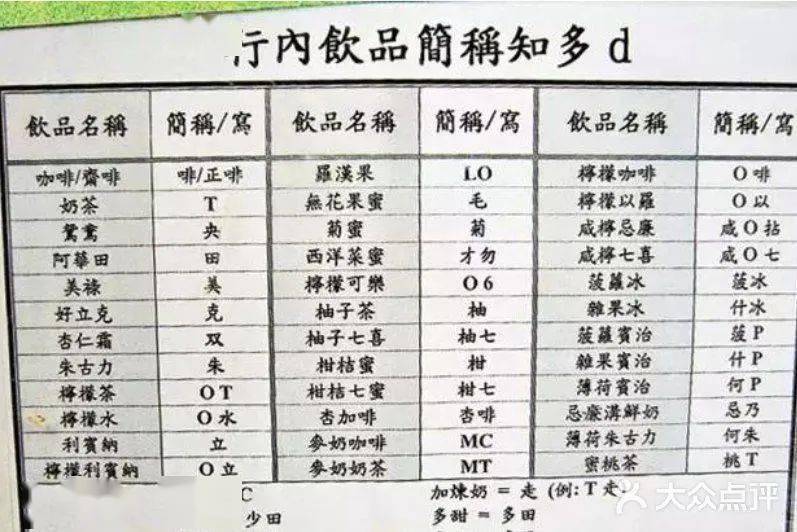 行內飲品簡稱知多d
飲品名稱 簡稱/寫 飲品名稱 簡稱/寫 飲品名稱 簡稱/寫
咖啡/齋啡 啡/正啡 羅漢果 LO 檸檬咖啡 O啡
奶茶 T 無花果蜜 毛 檸檬以羅 O以
鴛鴦 央 菊蜜 菊 咸檸忌廉 咸O拈
阿華田 田 西洋菜蜜 才勿 咸檸七喜 咸O七
美祿 美 檸檬可樂 O6 菠蘿冰 菠冰
好立克 克 柚子茶 柚 雜果冰 什冰
杏仁霜 双 柚子七喜 柚七 菠蘿賓治 菠P
朱古力 朱 柑桔蜜 柑 雜果賓治 什P
檸檬茶 OT 柑桔七蜜 柑七 薄荷賓治 何P
檸檬水 O水 杏加啡 杏啡 忌廉溝鮮奶 忌乃
利賓納 立 麥奶咖啡 MC 薄荷朱古力 何朱
檸檬利賓納 O立 麥奶奶茶 MT 蜜桃茶 桃T
C 加煉奶 = 走 (例: T走
少田 多甜 = 多田
大众点评